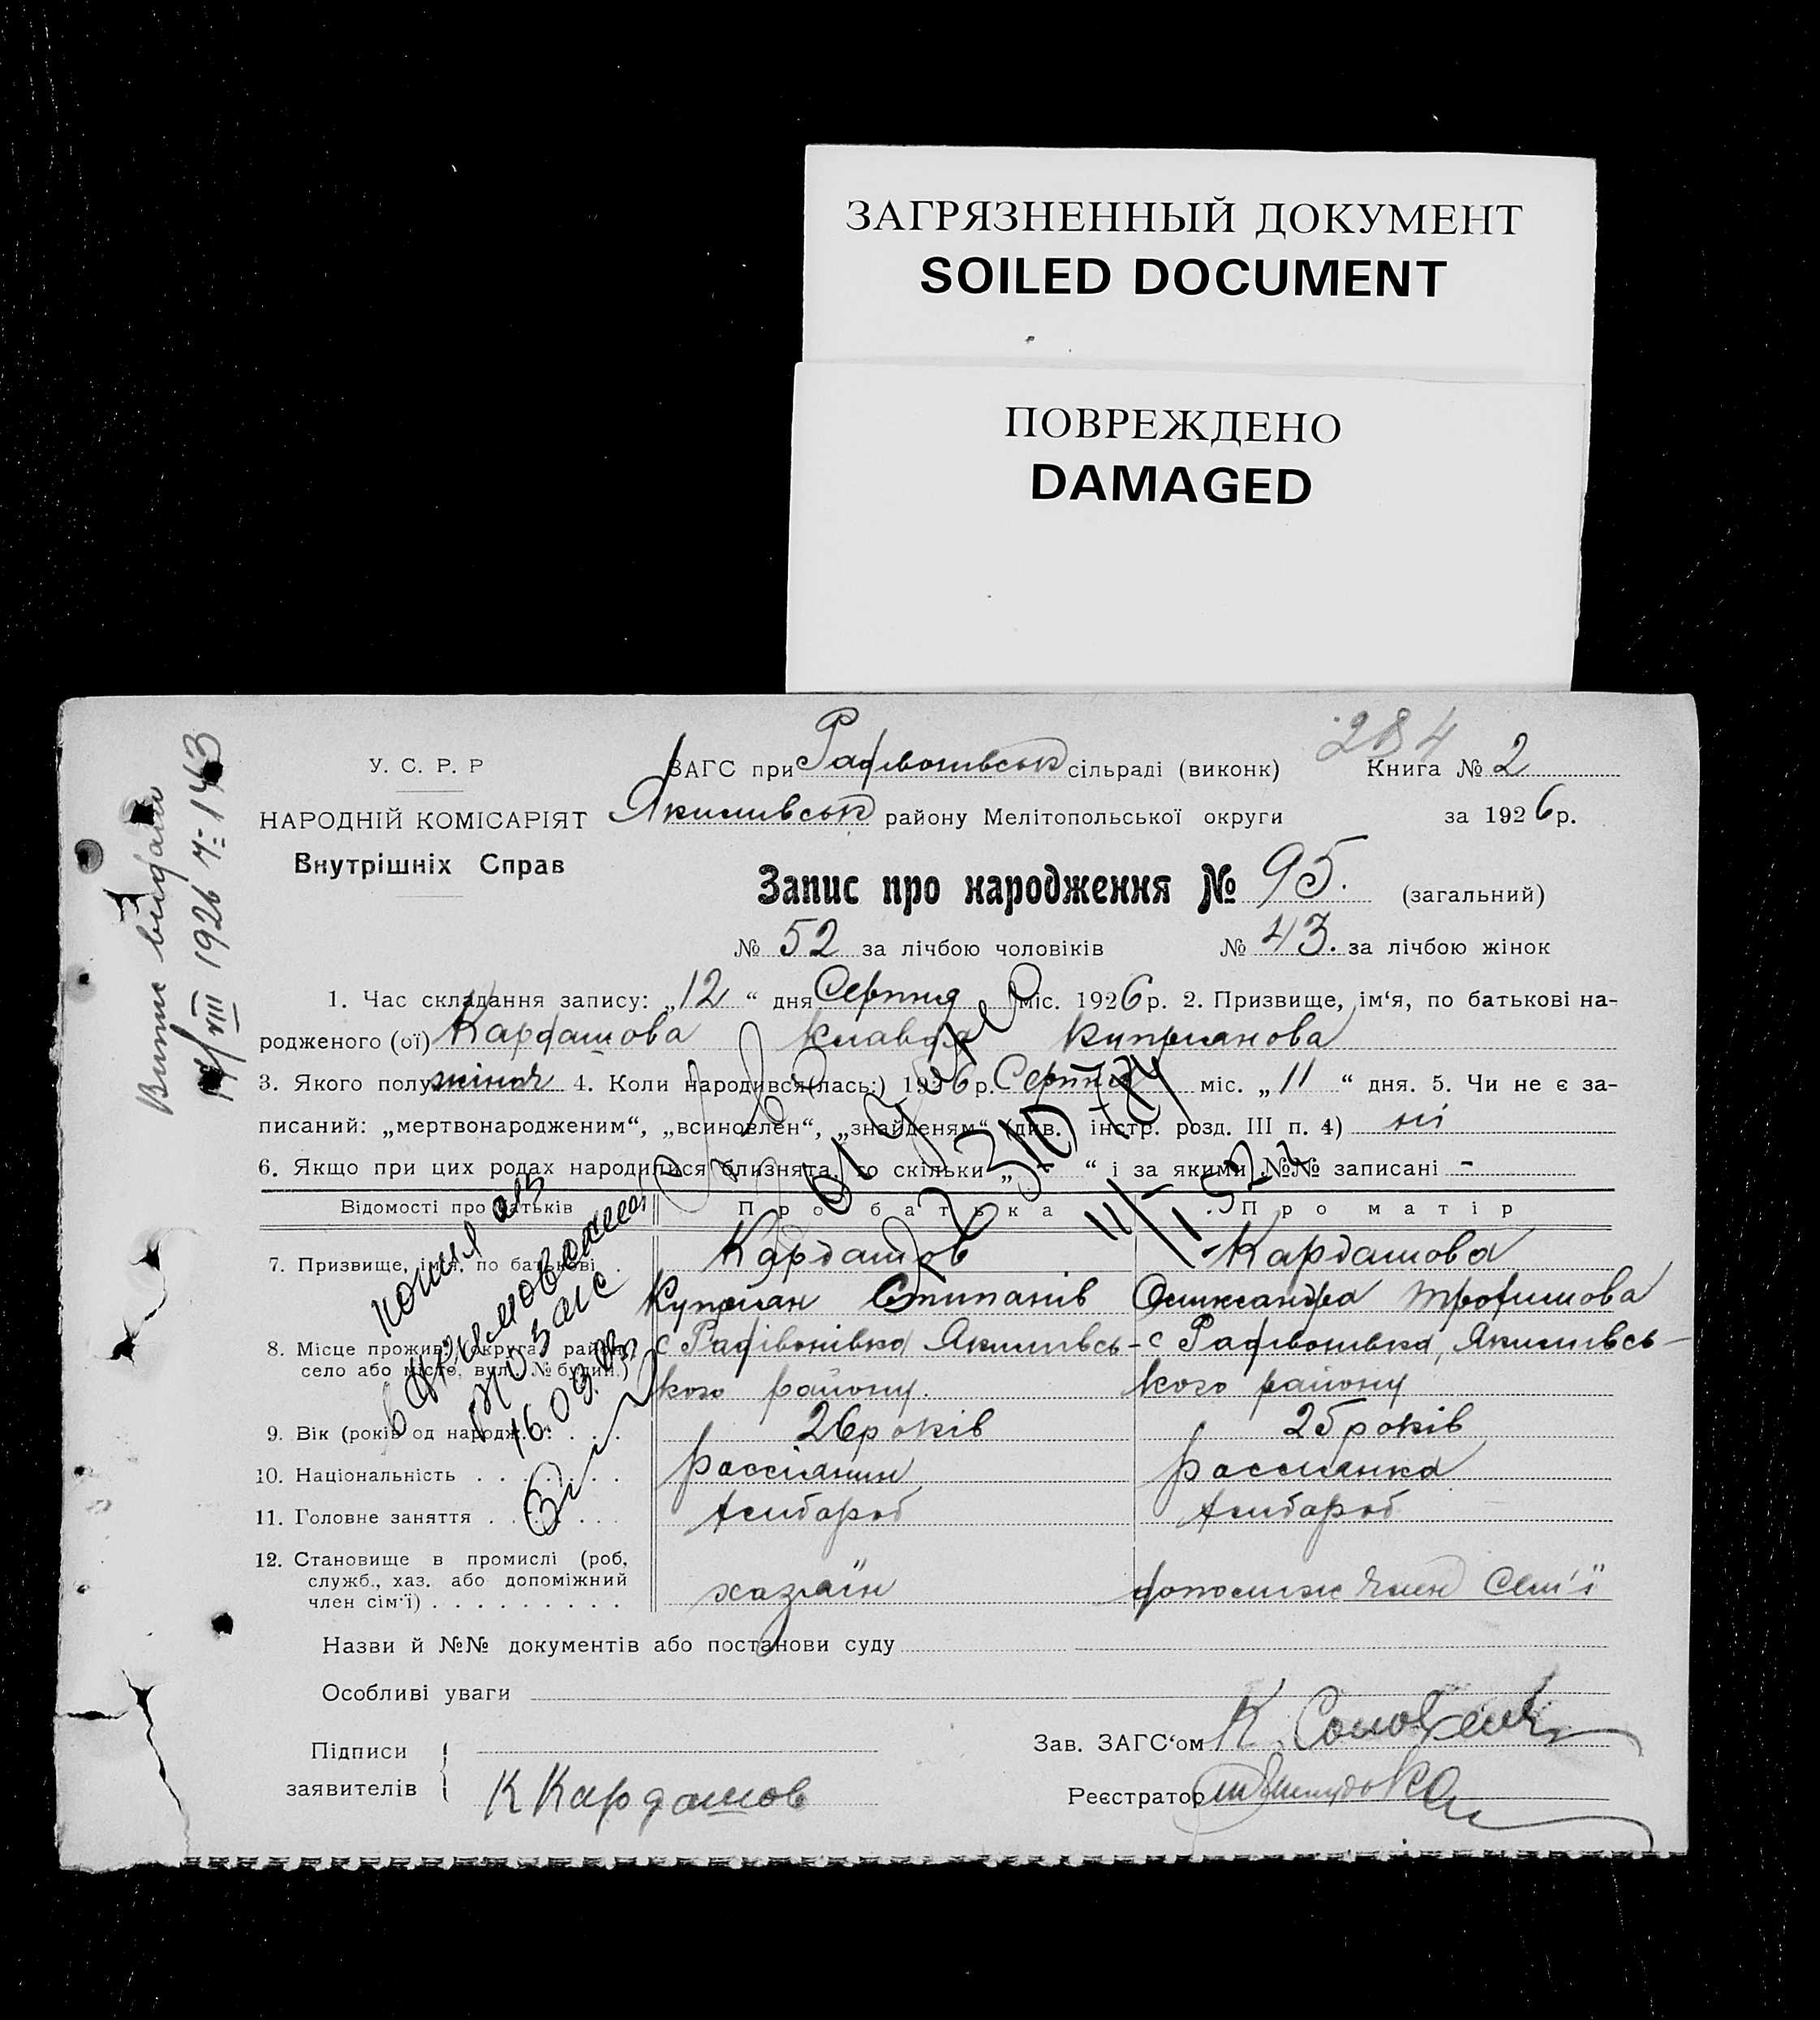 ЗАГРЯЗНЕННЫЙ ДОКУМЕНТ
SOILED DOCUMENT
ПОВРЕЖДЕНО
DAMAGED
284
У. С. Р. Р
ЗАГС при Радівонівськ сільраді (виконк) Книга № 2
НАРОДНІЙ КОМІСАРІЯТ Якимівськ району Мелітопольської округи за 1926 р.
Внутрішніх Справ
Запис про народження № 95. (загальний)
№ 52 за лічбою чоловіків № 43. за лічбою жінок
1. Час складання запису: „12“ дня Серпня міс. 1926 р. 2. Призвище, ім‘я, по батькові на-
родженого (ої) Кардашова Клавдія Купріанова
3. Якого полу жіноч 4. Коли народився(лась:) 1926 р. Серпня міс. „11“ дня. 5. Чи не є за-
писаний: „мертвонародженим“, „всиновлен“, „знайденям“ (див. інстр. розд. III п. 4) ні
6. Якщо при цих родах народилися близнята, то скільки „-“ і за якими №№ записані -
Відомості про батьків Про батька Про матір
7. Призвище, ім‘я, по батькові . Кардашов Кардашова
Купріан Степанів Олександра Трофимова
8. Місце прожив. (округа, район, с Радівонівка Якимівсь- с Радівонівка, Якимівсь-
село або місто, вул. № будин.) кого району. кого району
9. Вік (років од народж.) . . . . 26 років 25 років
10. Національність . . . . . . . Россіянин Россіянка
11. Головне заняття . . . . . . . хлібороб хлібороб
12. Становище в промислі (роб,
служб., хаз. або допоміжний хазяїн допоміж член сем'ї
член сім‘ї) . . . . . . . . .
Назви й №№ документів або постанови суду
Особливі уваги
Підписи Зав. ЗАГС‘ом К.
заявителів К Кардашов Реєстратор
Витяг видано
VIII 1926 № 1443
копия